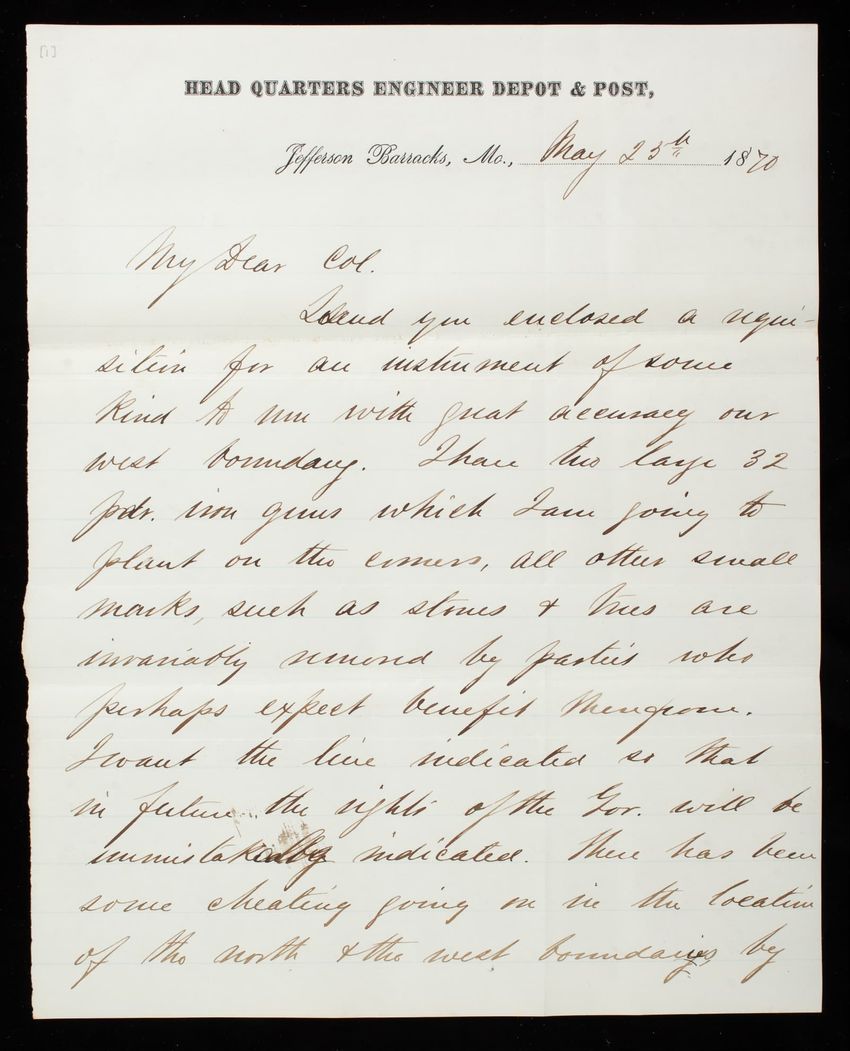 [1]
HEAD QUARTERS ENGINEER DEPOT & POST,
Jefferson Barracks, Mo., May 25th 1870
My Dear Col.
I send you enclosed a requi-
sition for an instrument of some
kind to run with great accuracy our
west boundary. I have two large 32
pdr. iron guns which I am going to
plant on the corners, all other small
marks, such as stones & trees are
invariably removed by parties who
perhaps expect benefit therefrom.
I want the line indicated so that
in future the rights of the Gov. will be
unmistakably indicated. There has been
some cheating going on in the location
of the north & the west boundaries by